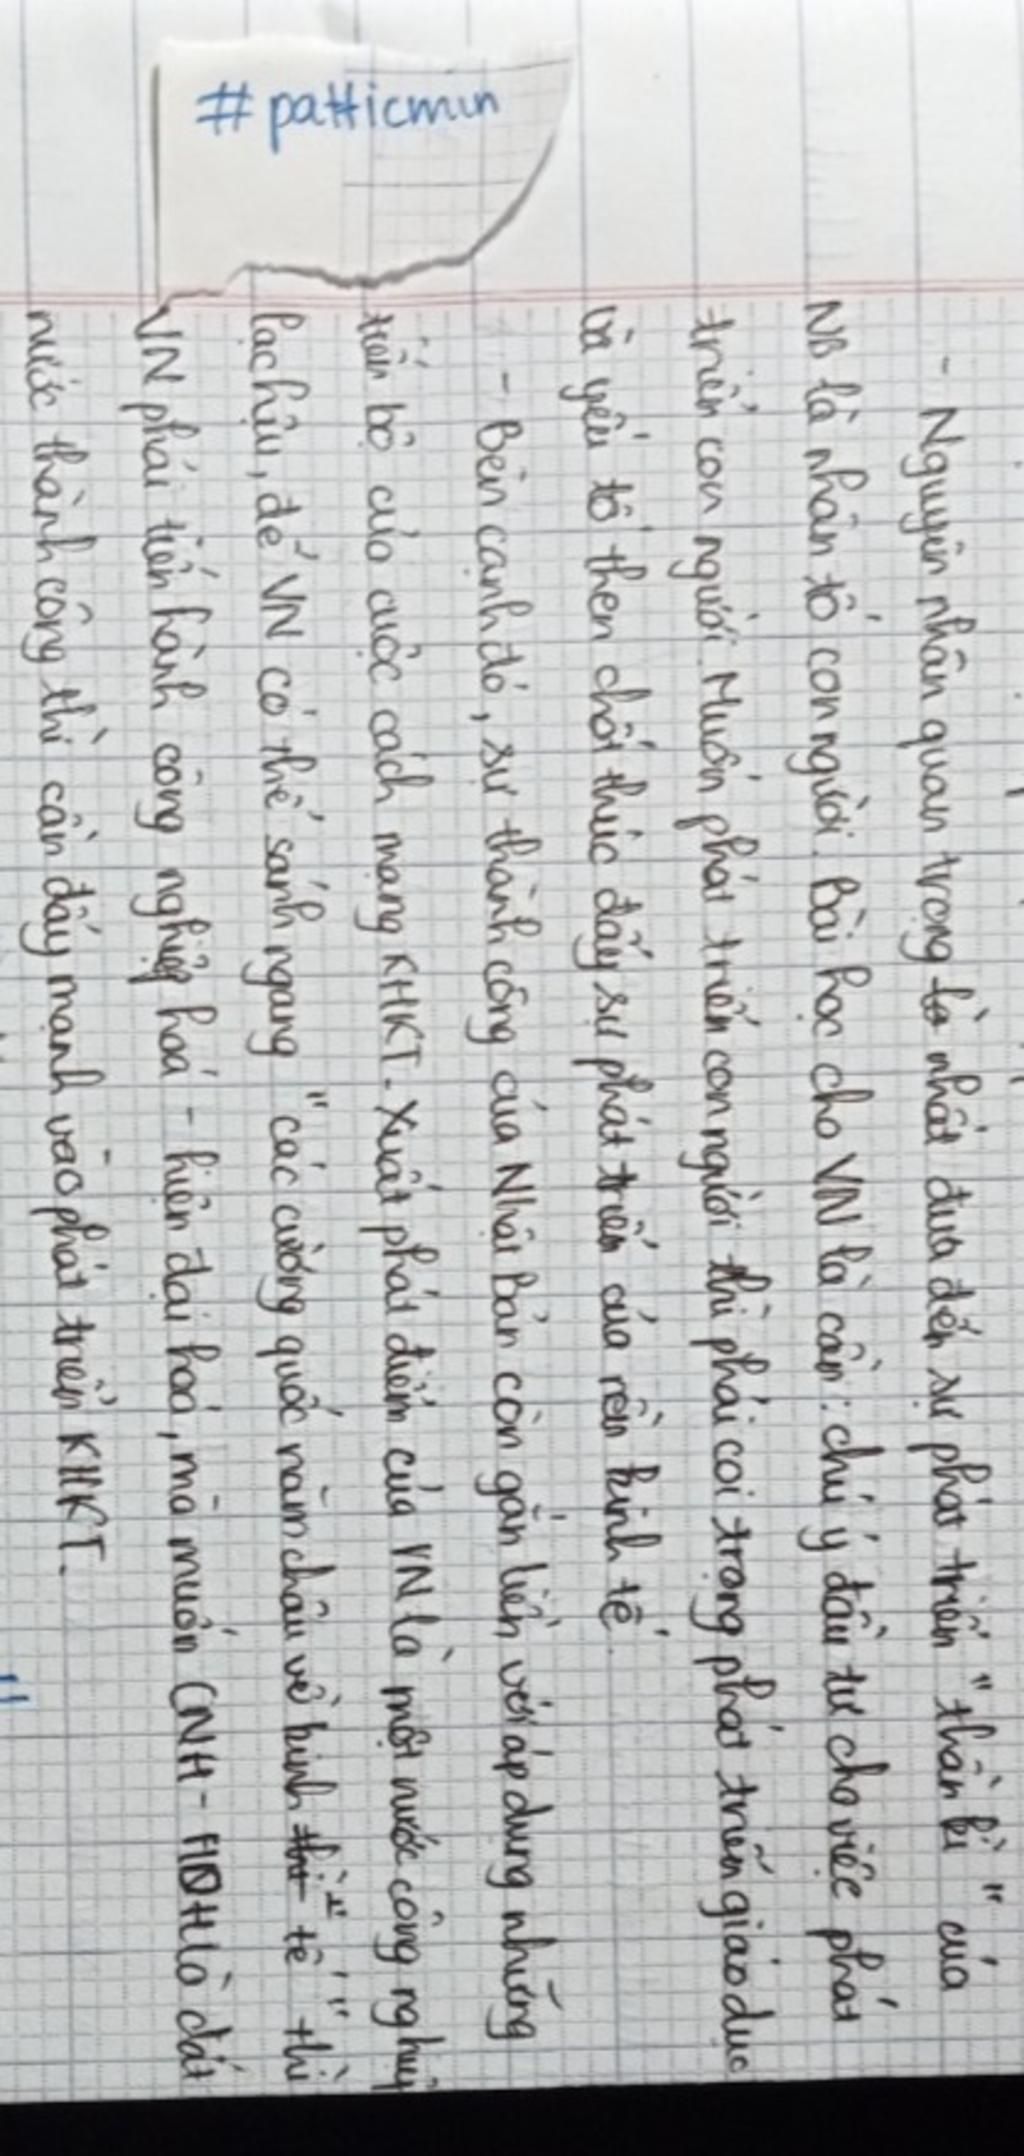 #patticmun
- Nguyên nhân quan trọng nhất đưa đến sự phát triển "thần kì" của
NB là nhân tố con người. Bài học cho VN là cần: chú ý đầu tư cho việc phát
triển con người. Muốn phát triển con người thì phải coi trọng phát triển giáo dục
là yếu tố then chốt thúc đẩy sự phát triển của nền kinh tế.
- Bên cạnh đó, sự thành công của Nhật Bản còn gắn liền với áp dụng những
tiến bộ của cuộc cách mạng KHKT. Xuất phát điểm của VN là một nước công nghiệp
lạc hậu, để VN có thể sánh ngang "các cường quốc năm châu về kinh tế" thì
VN phải tiến hành công nghiệp hoá - hiện đại hoá, mà muốn CNH - HĐH là đất
nước thành công thì cần đẩy mạnh vào phát triển KHKT.